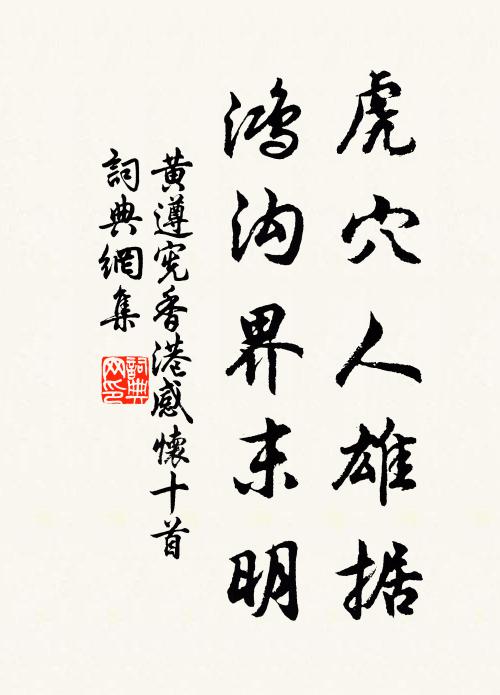 虎穴人雄据
鸿沟界未明
黄遵宪香港感懷十首
詞典網集
詞典網印